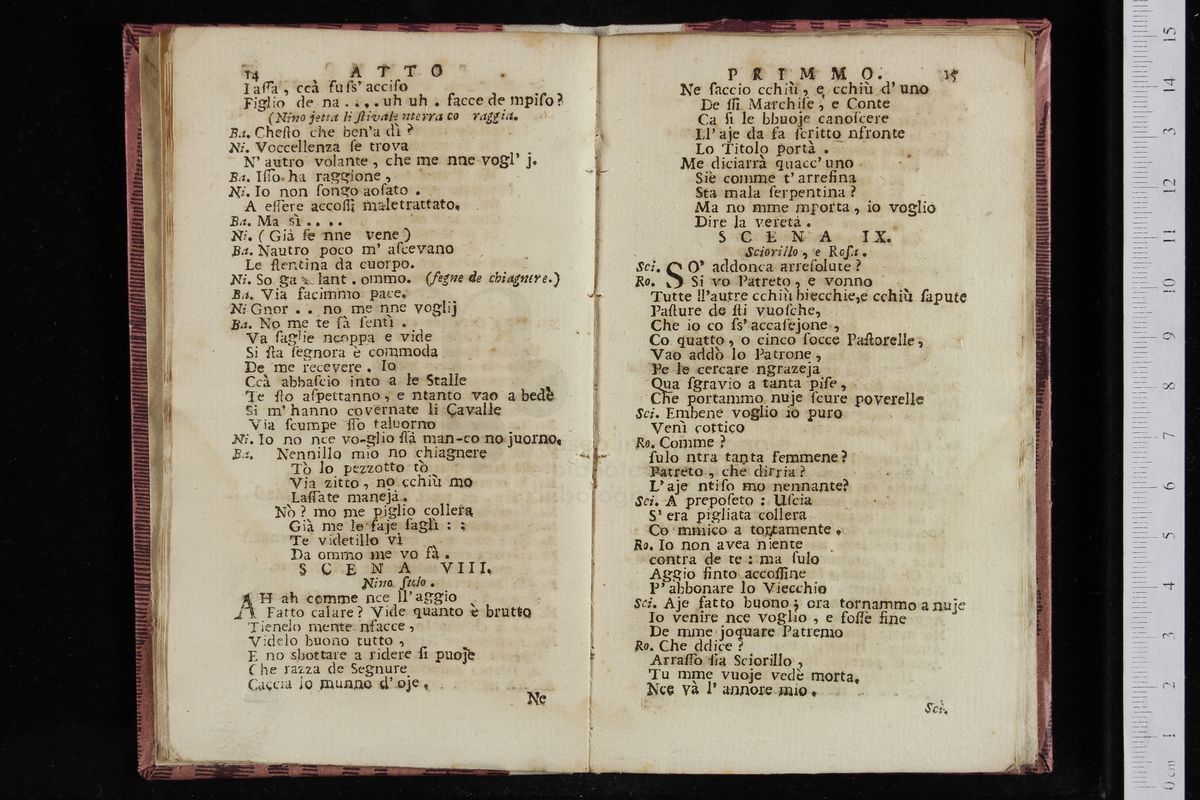 14 ATTO
Iassa', ccà fuss' acciso
Figlio de na .... uh uh . facce de mpiso?
(Nino jetta li stivale nterra co raggia.
Ba. Chesto che ben'a dì?
Ni. Voccellenza se trova
N' autro volante, che me nne vogl' j.
Ba. Isso ha raggione,
Ni. Io non songo aosato.
A essere accossì maletrattato.
Ba. Ma sì ....
Ni. (Già se nne vene)
Ba. Nautro poco m' ascevano
Le stentina da cuorpo.
Ni. So ga lant . ommo. (fegne de chiagnere.)
Ba. Via facimmo pace.
Ni Gnor .. no me nne voglij
Ba. No me te fà sentì .
Va saglie ncoppa e vide
Si sta segnora è commoda
De me recevere . Io
Ccà abbascio into a le Stalle
Te sto aspettanno, e ntanto vao a bedè
Si m' hanno covernate li Cavalle
Via scumpe sso taluorno
Ni. Io no nce vo-glio stà man-co no juorno.
Ba. Nennillo mio no chiagnere
Tò lo pezzotto tò
Via zitto, no cchiù mo
Lassate manejà.
Nò? mo me piglio collera
Già me le faje saglì : ;
Te videtillo vì
Da ommo me vo fà.
SCENA VIII.
Nino sulo.
AH ah comme nce ll'aggio
Fatto calare? Vide quanto è brutto
Tienelo mente nfacce,
Videlo buono tutto,
E no sbottare a ridere si puoje
Che razza de Segnure
Caccia lo munno d' oje.
Ne
PRIMMO. 15
Ne saccio cchiù, e cchiù d' uno
De ssi Marchise, e Conte
Ca si le bbuoje canoscere
Ll' aje da fa scritto nfronte
Lo Titolo portà .
Me diciarrà quacc' uno
Siè comme t' arresina
Sta mala serpentina?
Ma no mme mporta, io voglio
Dire la veretà.
SCENA IX.
Sciorillo, e Rosa.
Sci. SO' addonca arresolute?
Ro. Si vo Patreto, e vonno
Tutte ll'autre cchiù biecchie,e cchiù sapute
Pasture de sti vuosche,
Che io co ss' accasejone,
Co quatto, o cinco socce Pastorelle,
Vao addò lo Patrone,
Pe le cercare ngrazeja
Qua sgravio a tanta pise,
Che portammo nuje scure poverelle
Sci. Embene voglio io puro
Venì cottico
Ro. Comme?
sulo ntra tanta femmene?
Patreto, che dirria?
L' aje ntiso mo nennante?
Sci. A preposeto : Uscia
S' era pigliata collera
Co mmico a tortamente.
Ro. Io non avea niente
contra de te : ma sulo
Aggio finto accossine
P' abbonare lo Viecchio
Sci. Aje fatto buono; ora tornammo a nuje
Io venire nce voglio, e fosse fine
De mme joquare Patremo
Ro. Che ddice?
Arrasso sia Sciorillo,
Tu mme vuoje vedè morta.
Nce và l' annore mio.
Sci.